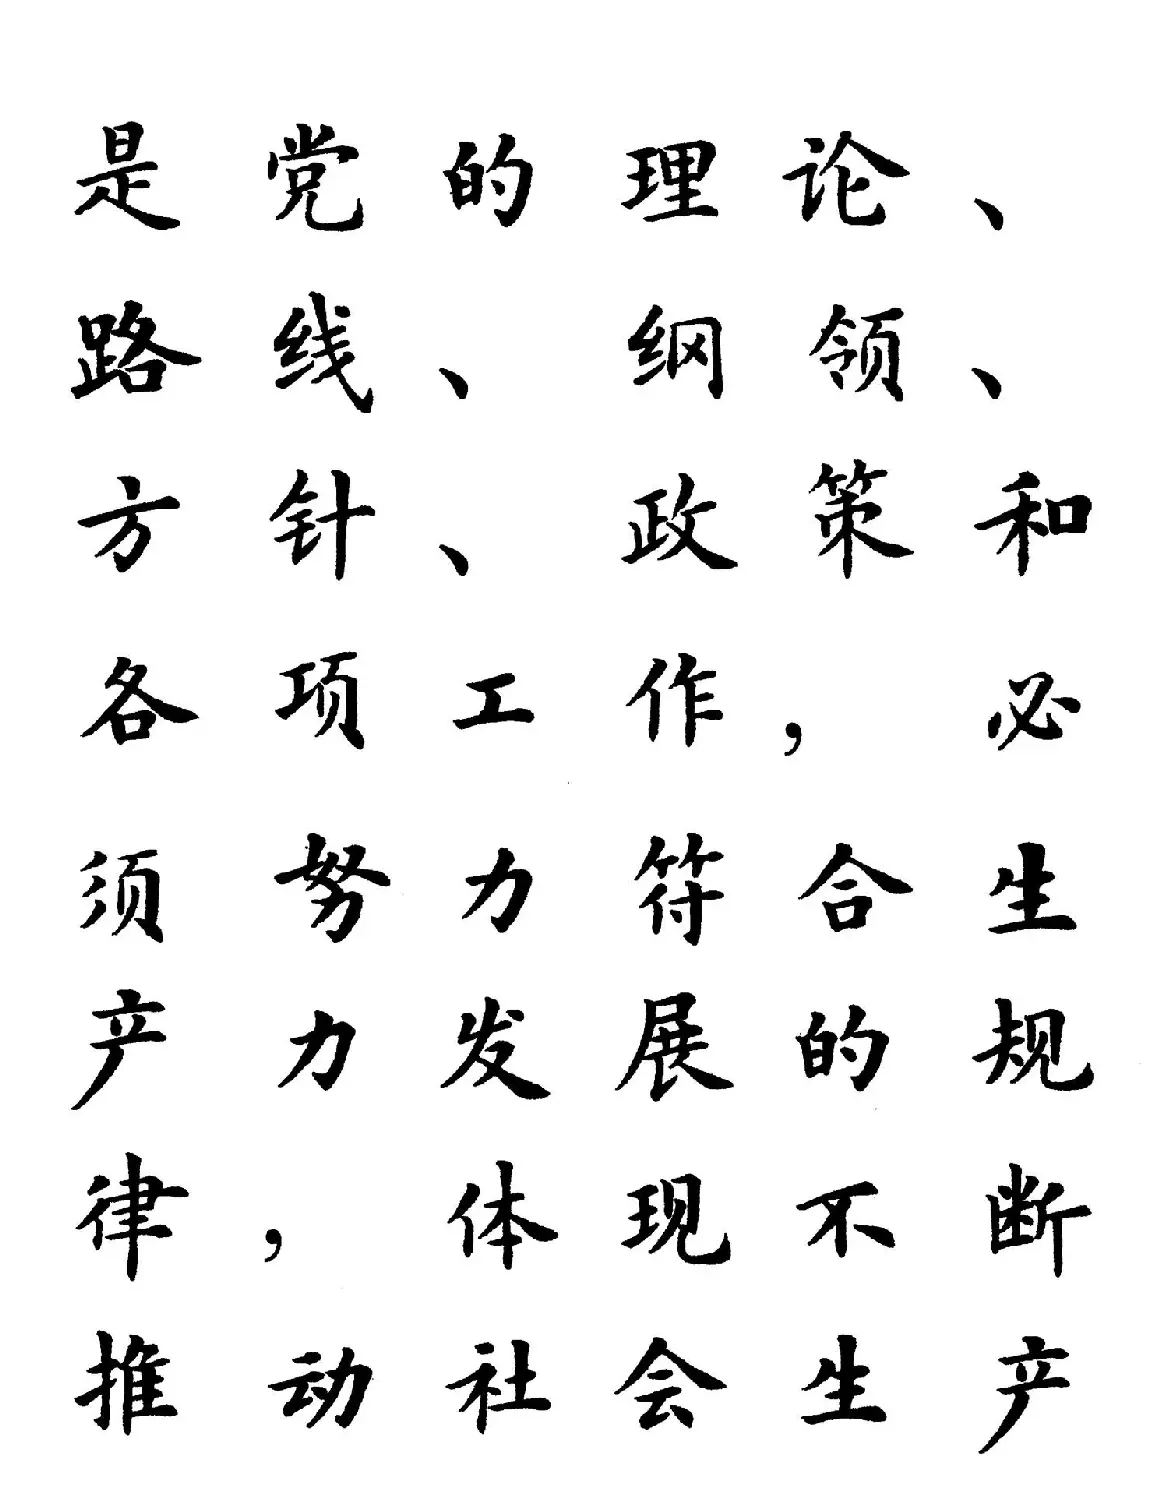 是党的理论、
路线、纲领、
方针、政策和
各项工作，必
须努力符合生
产力发展的规
律，体现不断
推动社会生产